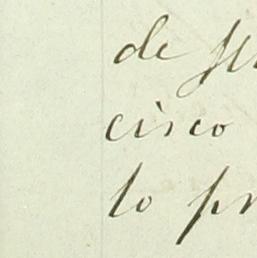 de
cisco
to pr